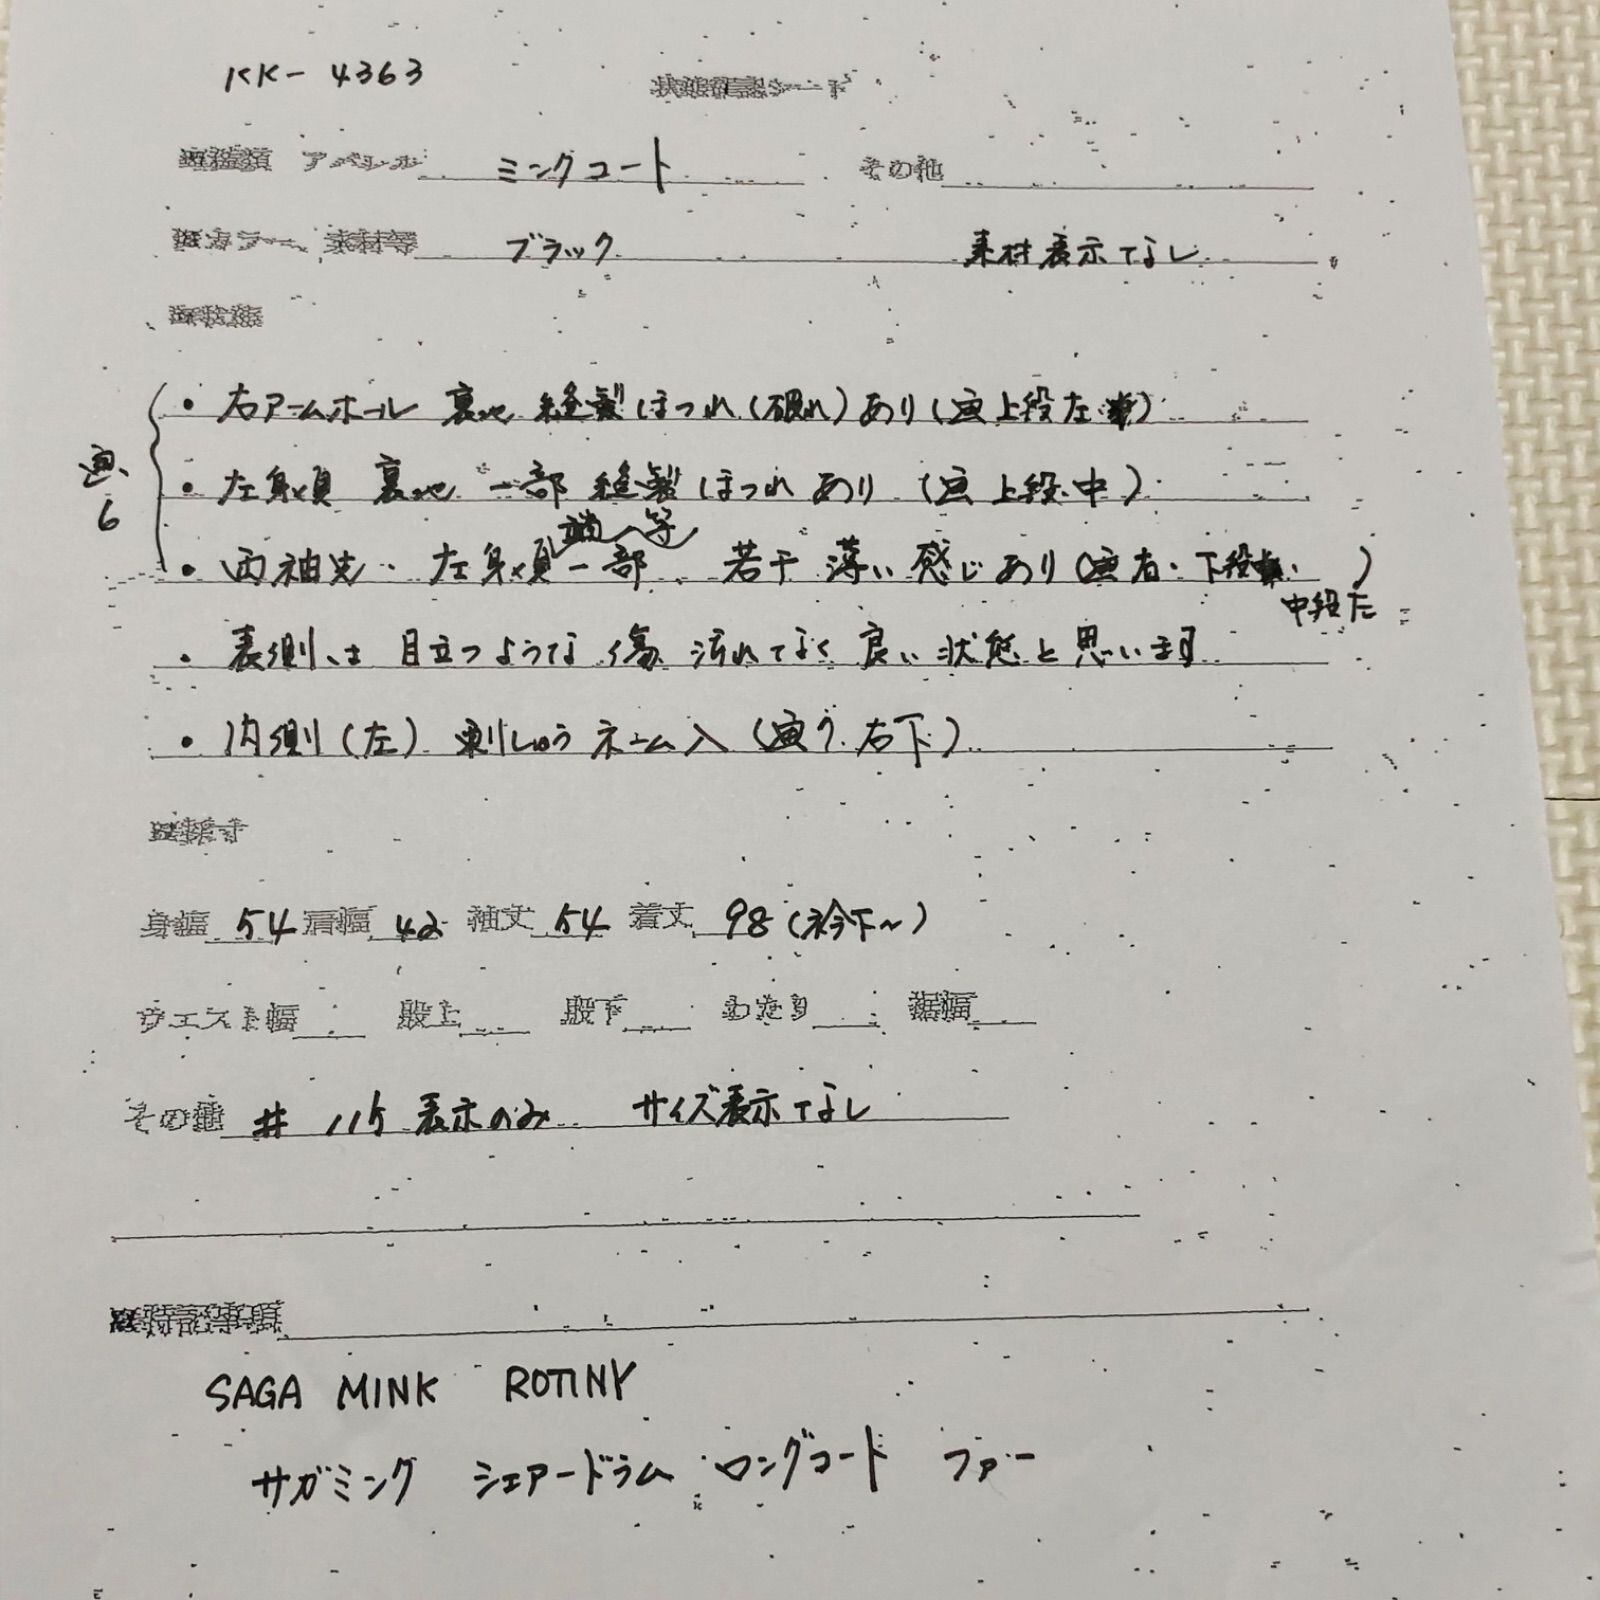 KK-4363
状態確認シート
アパレル ミンクコート その他
カラー、素材等 ブラック 素材表示なし
・右アームホール 裏地 縫製ほつれ(破れ)あり(画上段左)
・左身頃 裏地 一部 縫製ほつれあり (画上段中)
画6
端へ等
・両袖先・左身頃一部、若干薄い感じあり(画右・下段・中段左)
・表側は目立つような傷汚れてなく良い状態と思います
・内側(左)刺しゅうネーム入(画7右下)
採寸
身幅 54 肩幅 42 袖丈 54 着丈 98(衿下~)
ウエスト幅 股上 股下 わたり 裾幅
その他 # 115 表示のみ サイズ表示なし
特記事項
SAGA MINK ROTINY
サガミンク シェアードラム ロングコート ファー